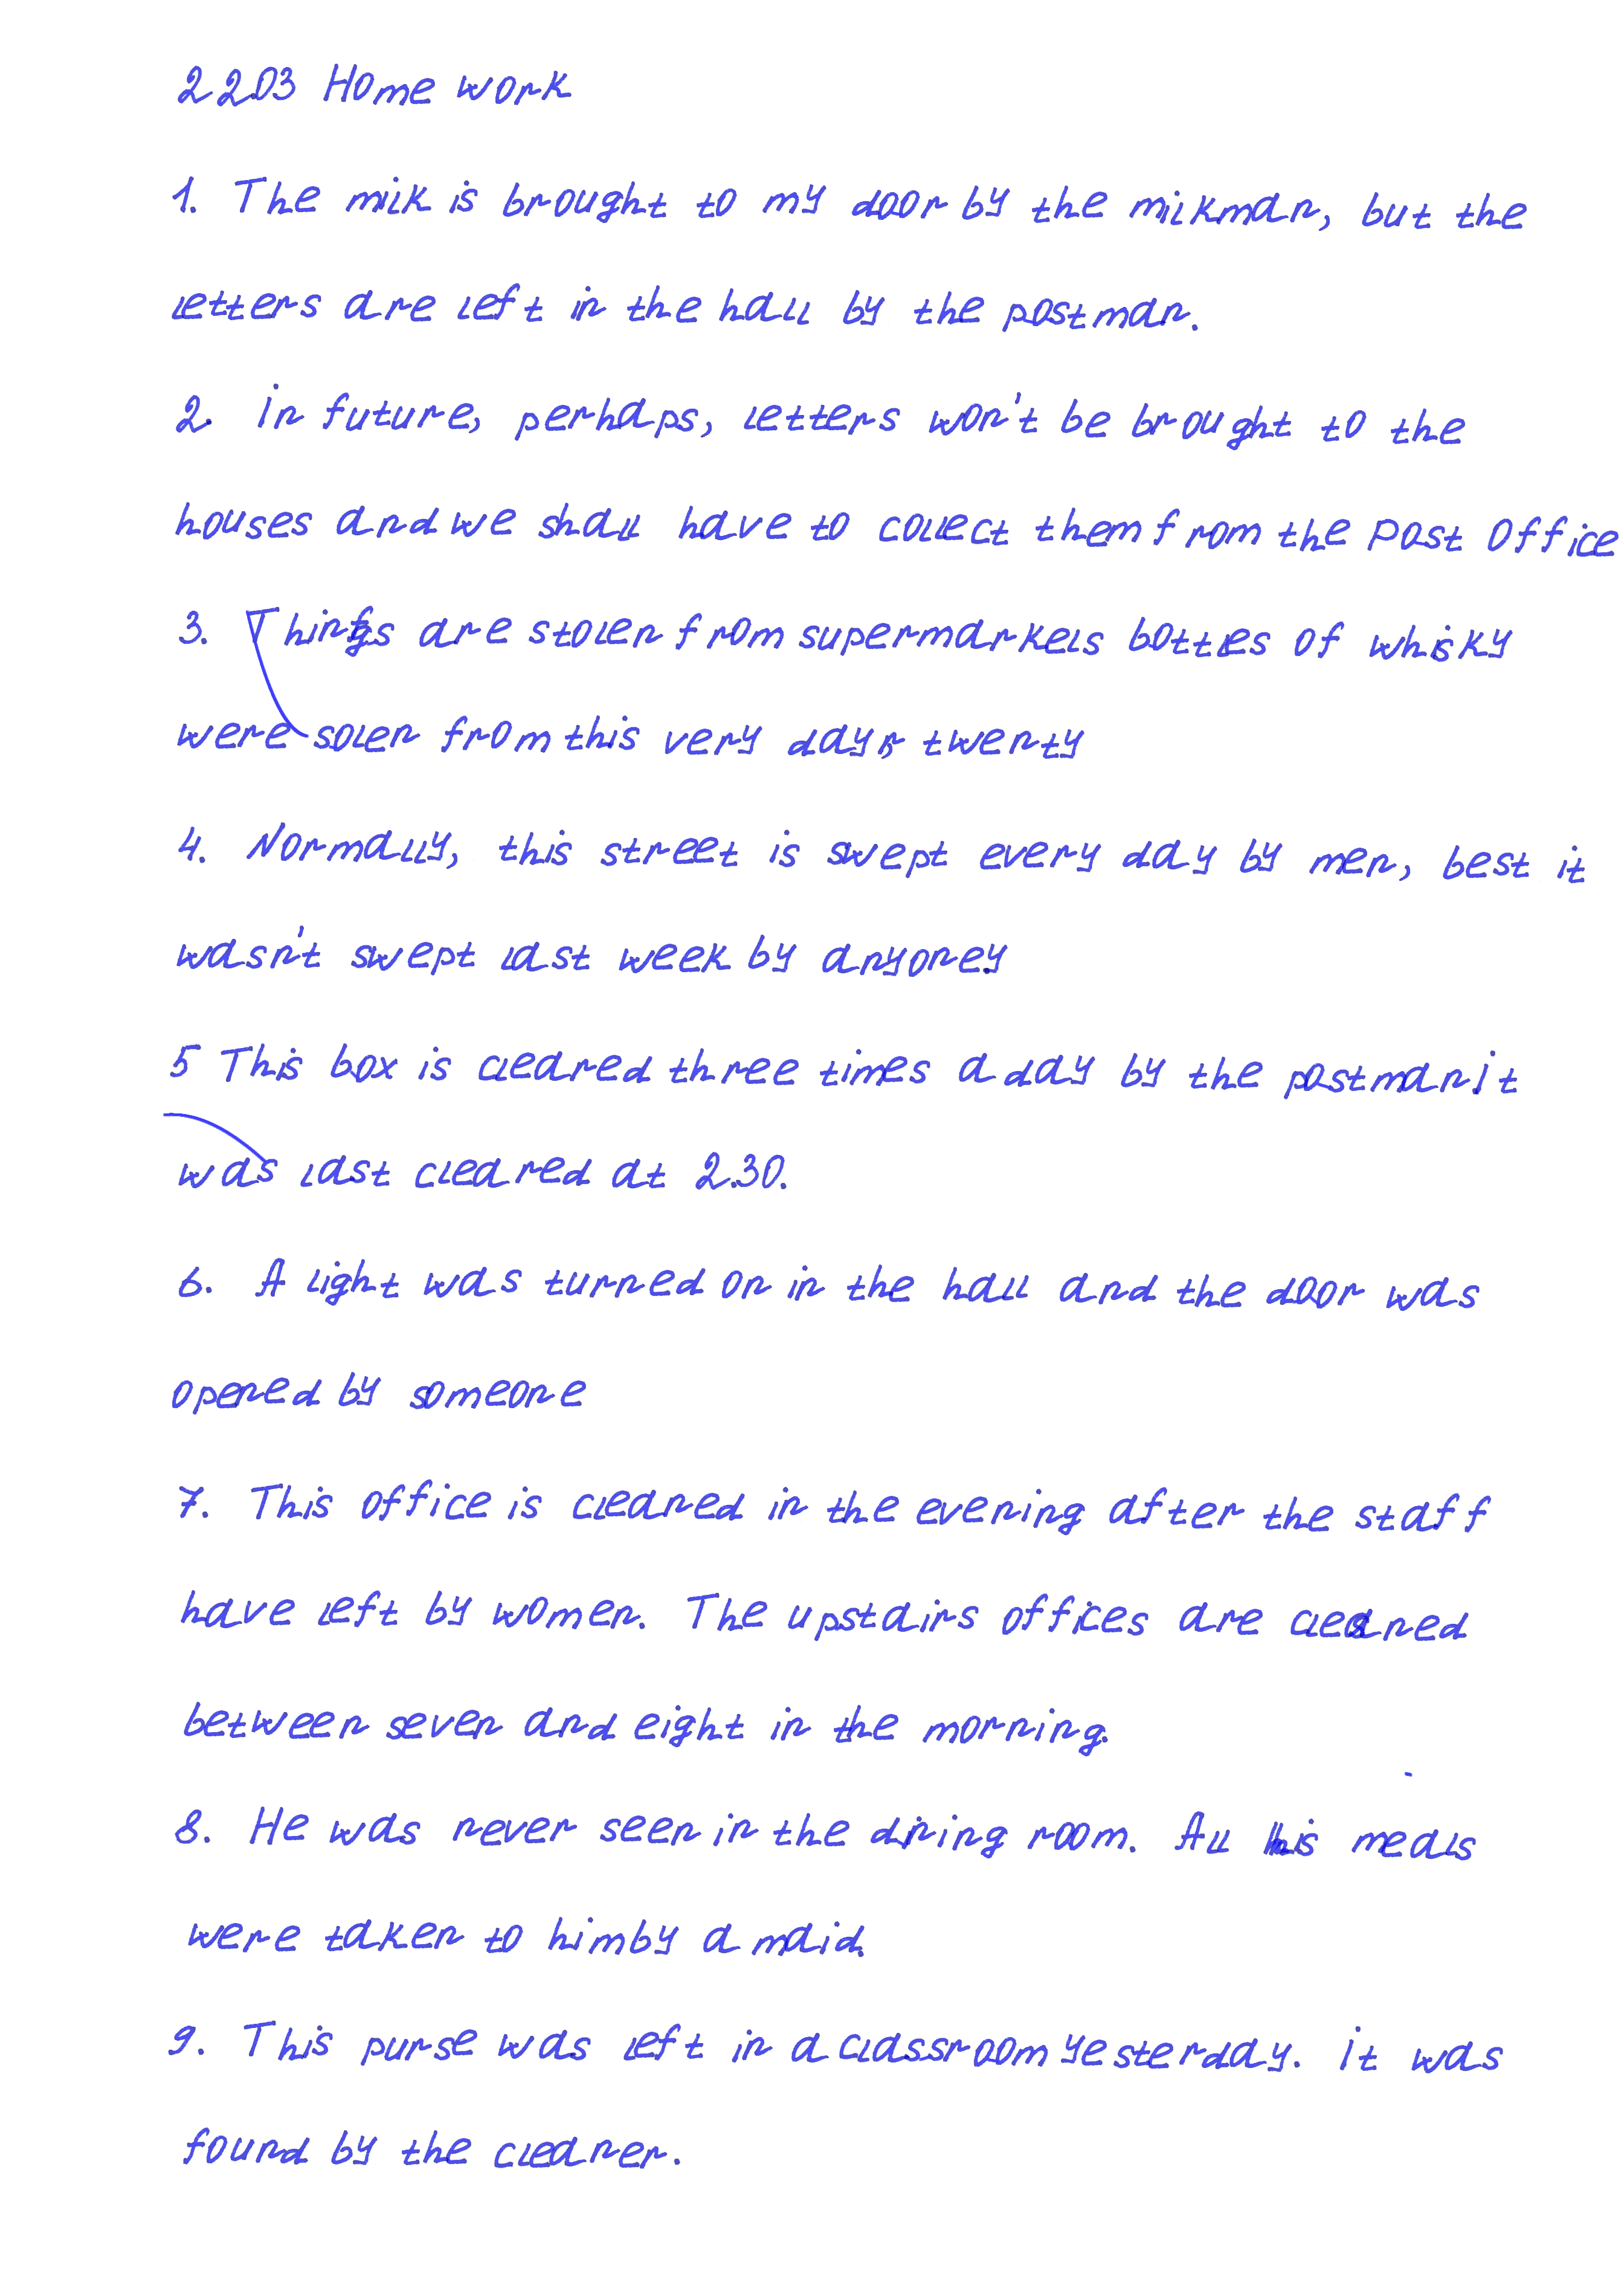 22.03 Home work
1. The milk is brought to my door by the milkman, but the
letters are left in the hall by the postman.
2. in future, perhaps, letters won't be brought to the
houses and we shall have to collect them from the Post Office
3. Things are stolen from supermarkels bottles of whisky
were solen from this very day, twenty
4. Normally, this street is swept every day by men, best it
wasn't swept last week by anyoney
5 This box is cleared three times a day by the postman. it
was last cleared at 2.30.
6. A light was turned on in the hall and the door was
opened by someone
7. This office is cleaned in the evening after the staff
have left by women. The upstairs offices are cleaned
between seven and eight in the morning.
8. He was never seen in the dining room. All his meals
were taken to him by a maid.
9. This purse was left in a classroom yesterday. it was
found by the cleaner.